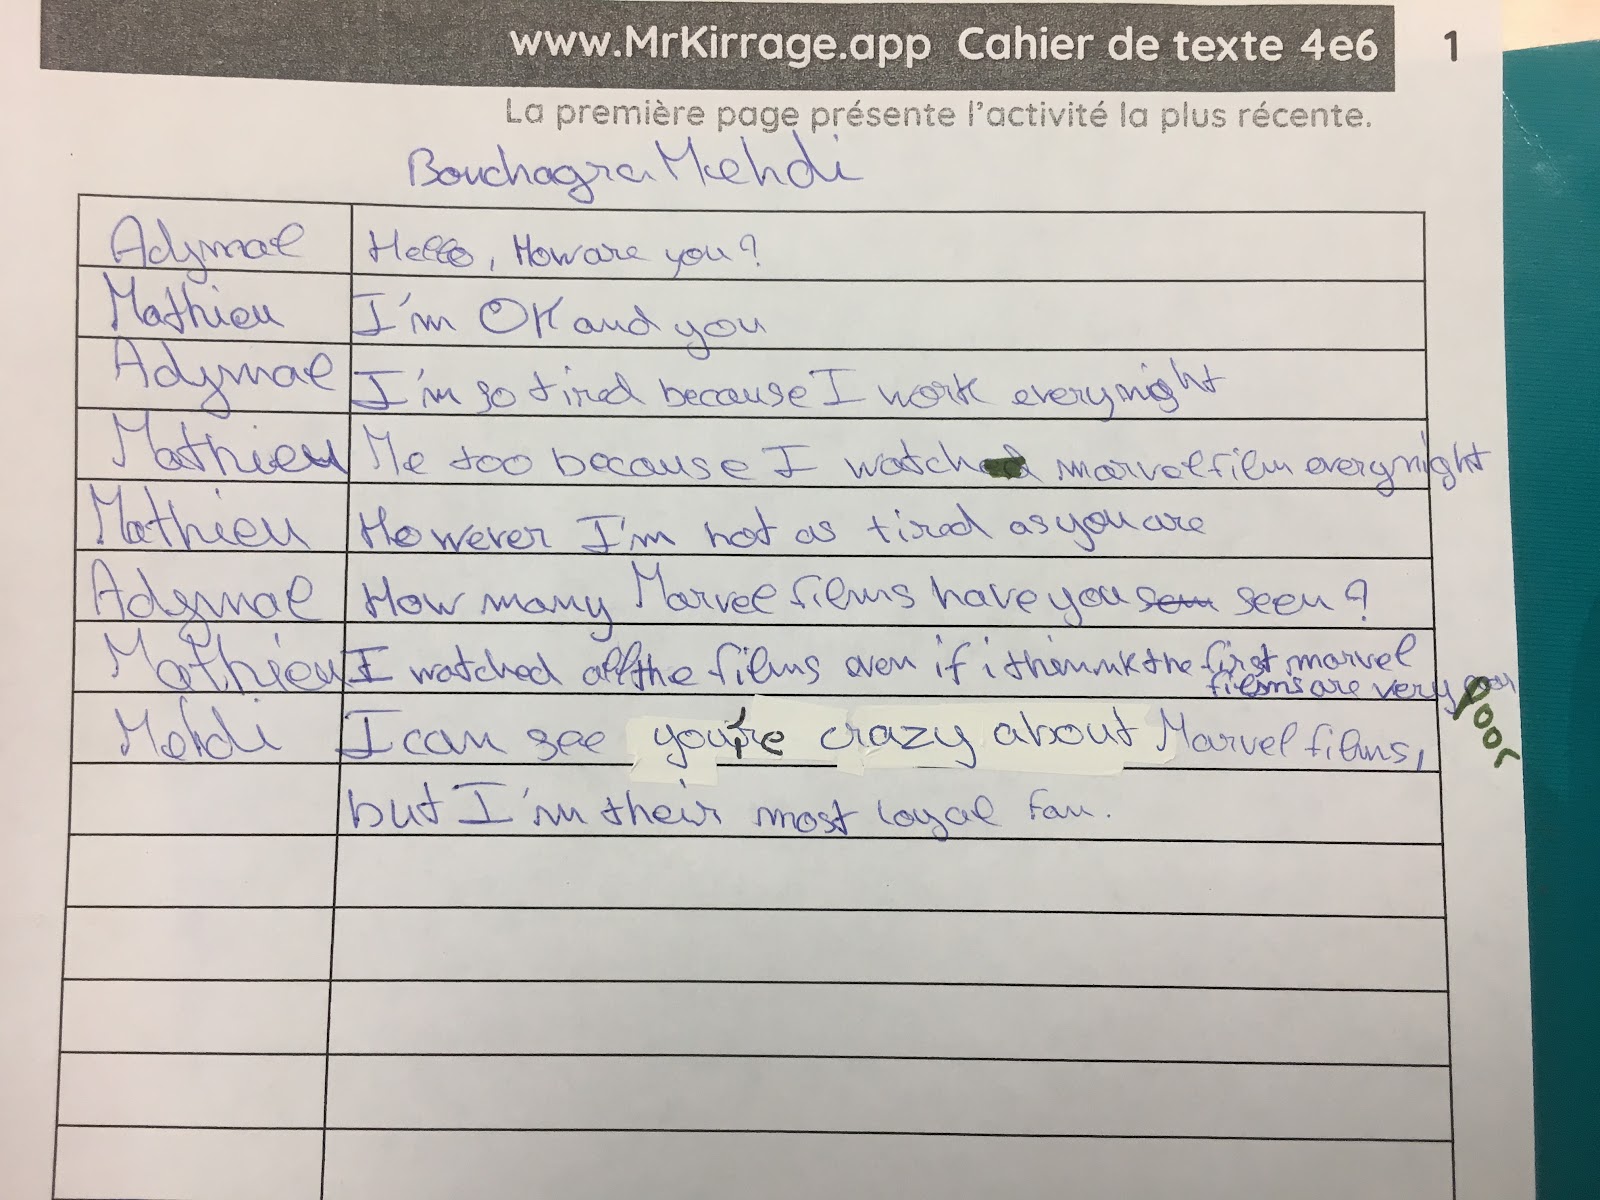 www.MrKirrage.app Cahier de texte 4e6 1
La première page présente l'activité la plus récente.
Bouchagra Mehdi
Adymal Hello, How are you?
Mathieu I'm OK and you
Adymal I'm so tired because I work every night
Mathieu Me too because I watched marvel film every night
Mathieu However I'm not as tired as you are
Adymal How many Marvel films have you seen?
Mathieu I watched all the films even if i think the first marvel
films are very poor
Mehdi I can see you're crazy about Marvel films,
but I'm their most loyal fan.